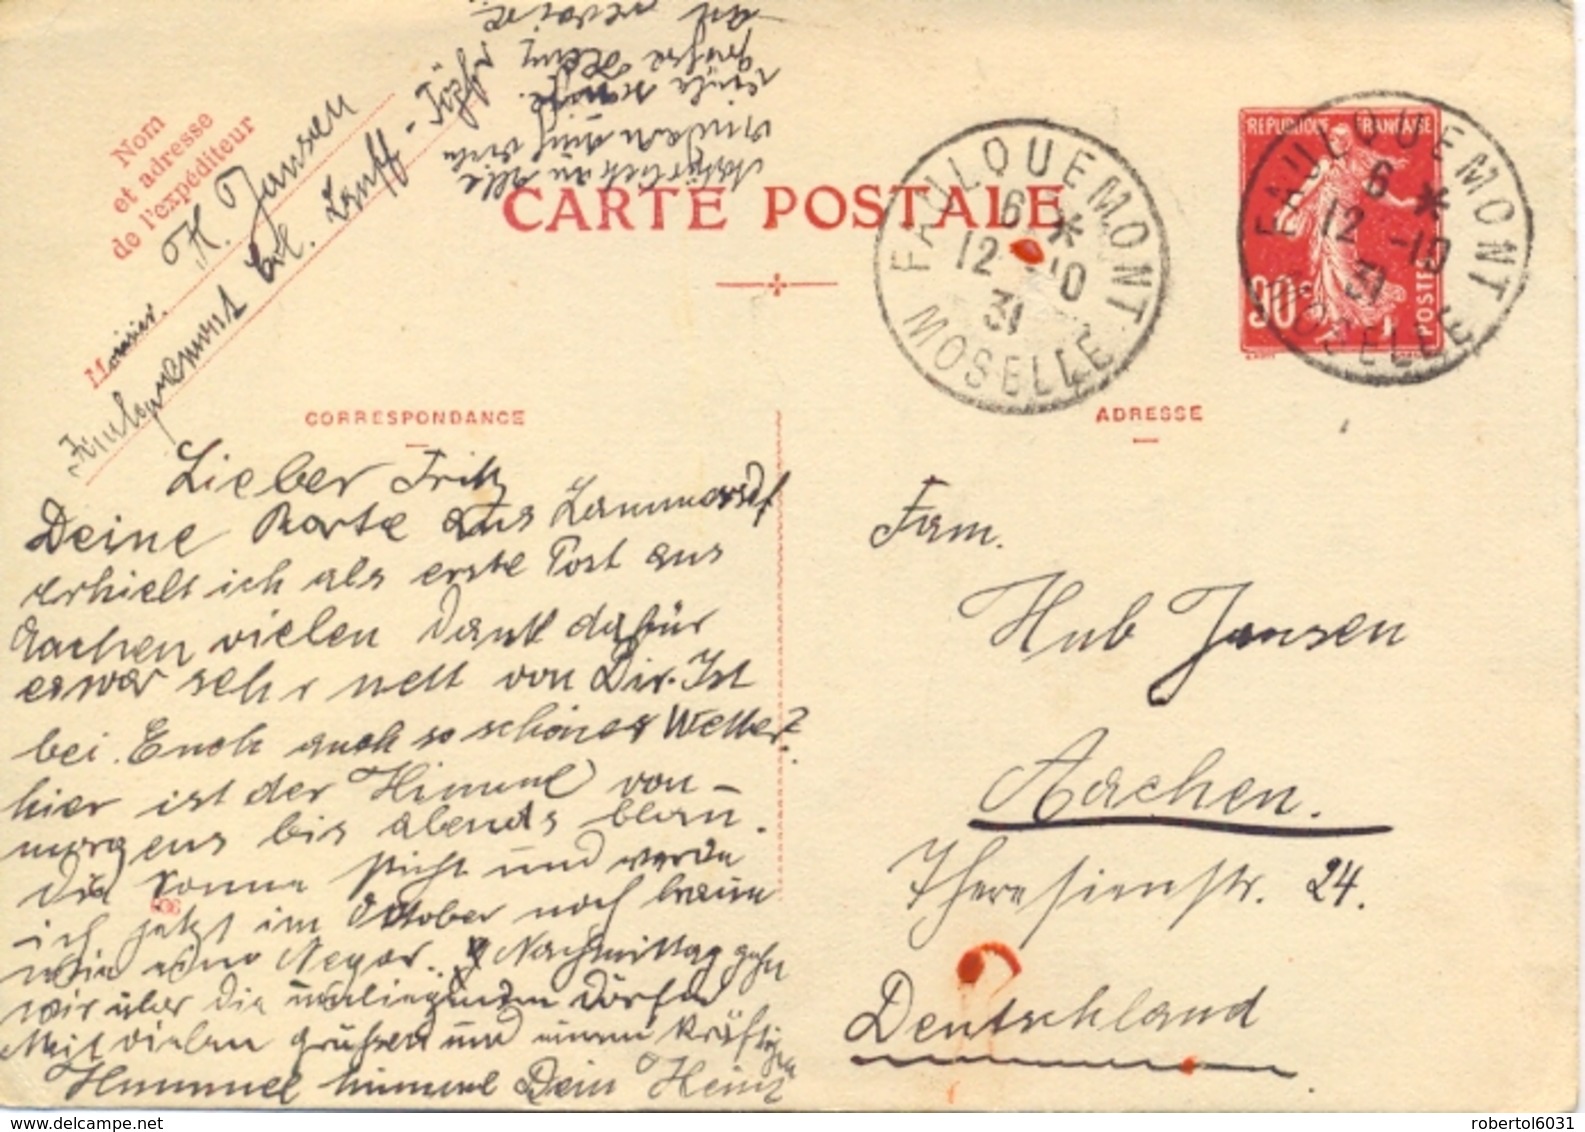 Nom
et adresse
de l'expéditeur
H. Jansen
Faulquemont
CARTE POSTALE
RÉPUBLIQUE FRANÇAISE
90c
POSTES
FAULQUEMONT
6 *
12 -10
31
MOSELLE
FAULQUEMONT
6 *
12 -10
31
MOSELLE
CORRESPONDANCE
ADRESSE
Lieber Fritz
Deine Karte aus Lammersdf
erhielt ich als erste Post aus
Aachen vielen Dank dafür
es war sehr nett von Dir. Ist
bei Euch auch so schönes Wetter?
hier ist der Himmel von
morgens bis abends blau.
Die Sonne sticht und werde
ich jetzt im Oktober noch braun
wie eine Neger. Nachmittag gehn
wir über die umliegenden Dörfer
Mit vielen grüßen und einem kräftigen
Hummel hummel Dein Heinz
Natürlich an alle
große Heinz
Fam.
Hub Jansen
Aachen.
Theresienstr. 24.
Deutschland
robertol6031 delcampe.net